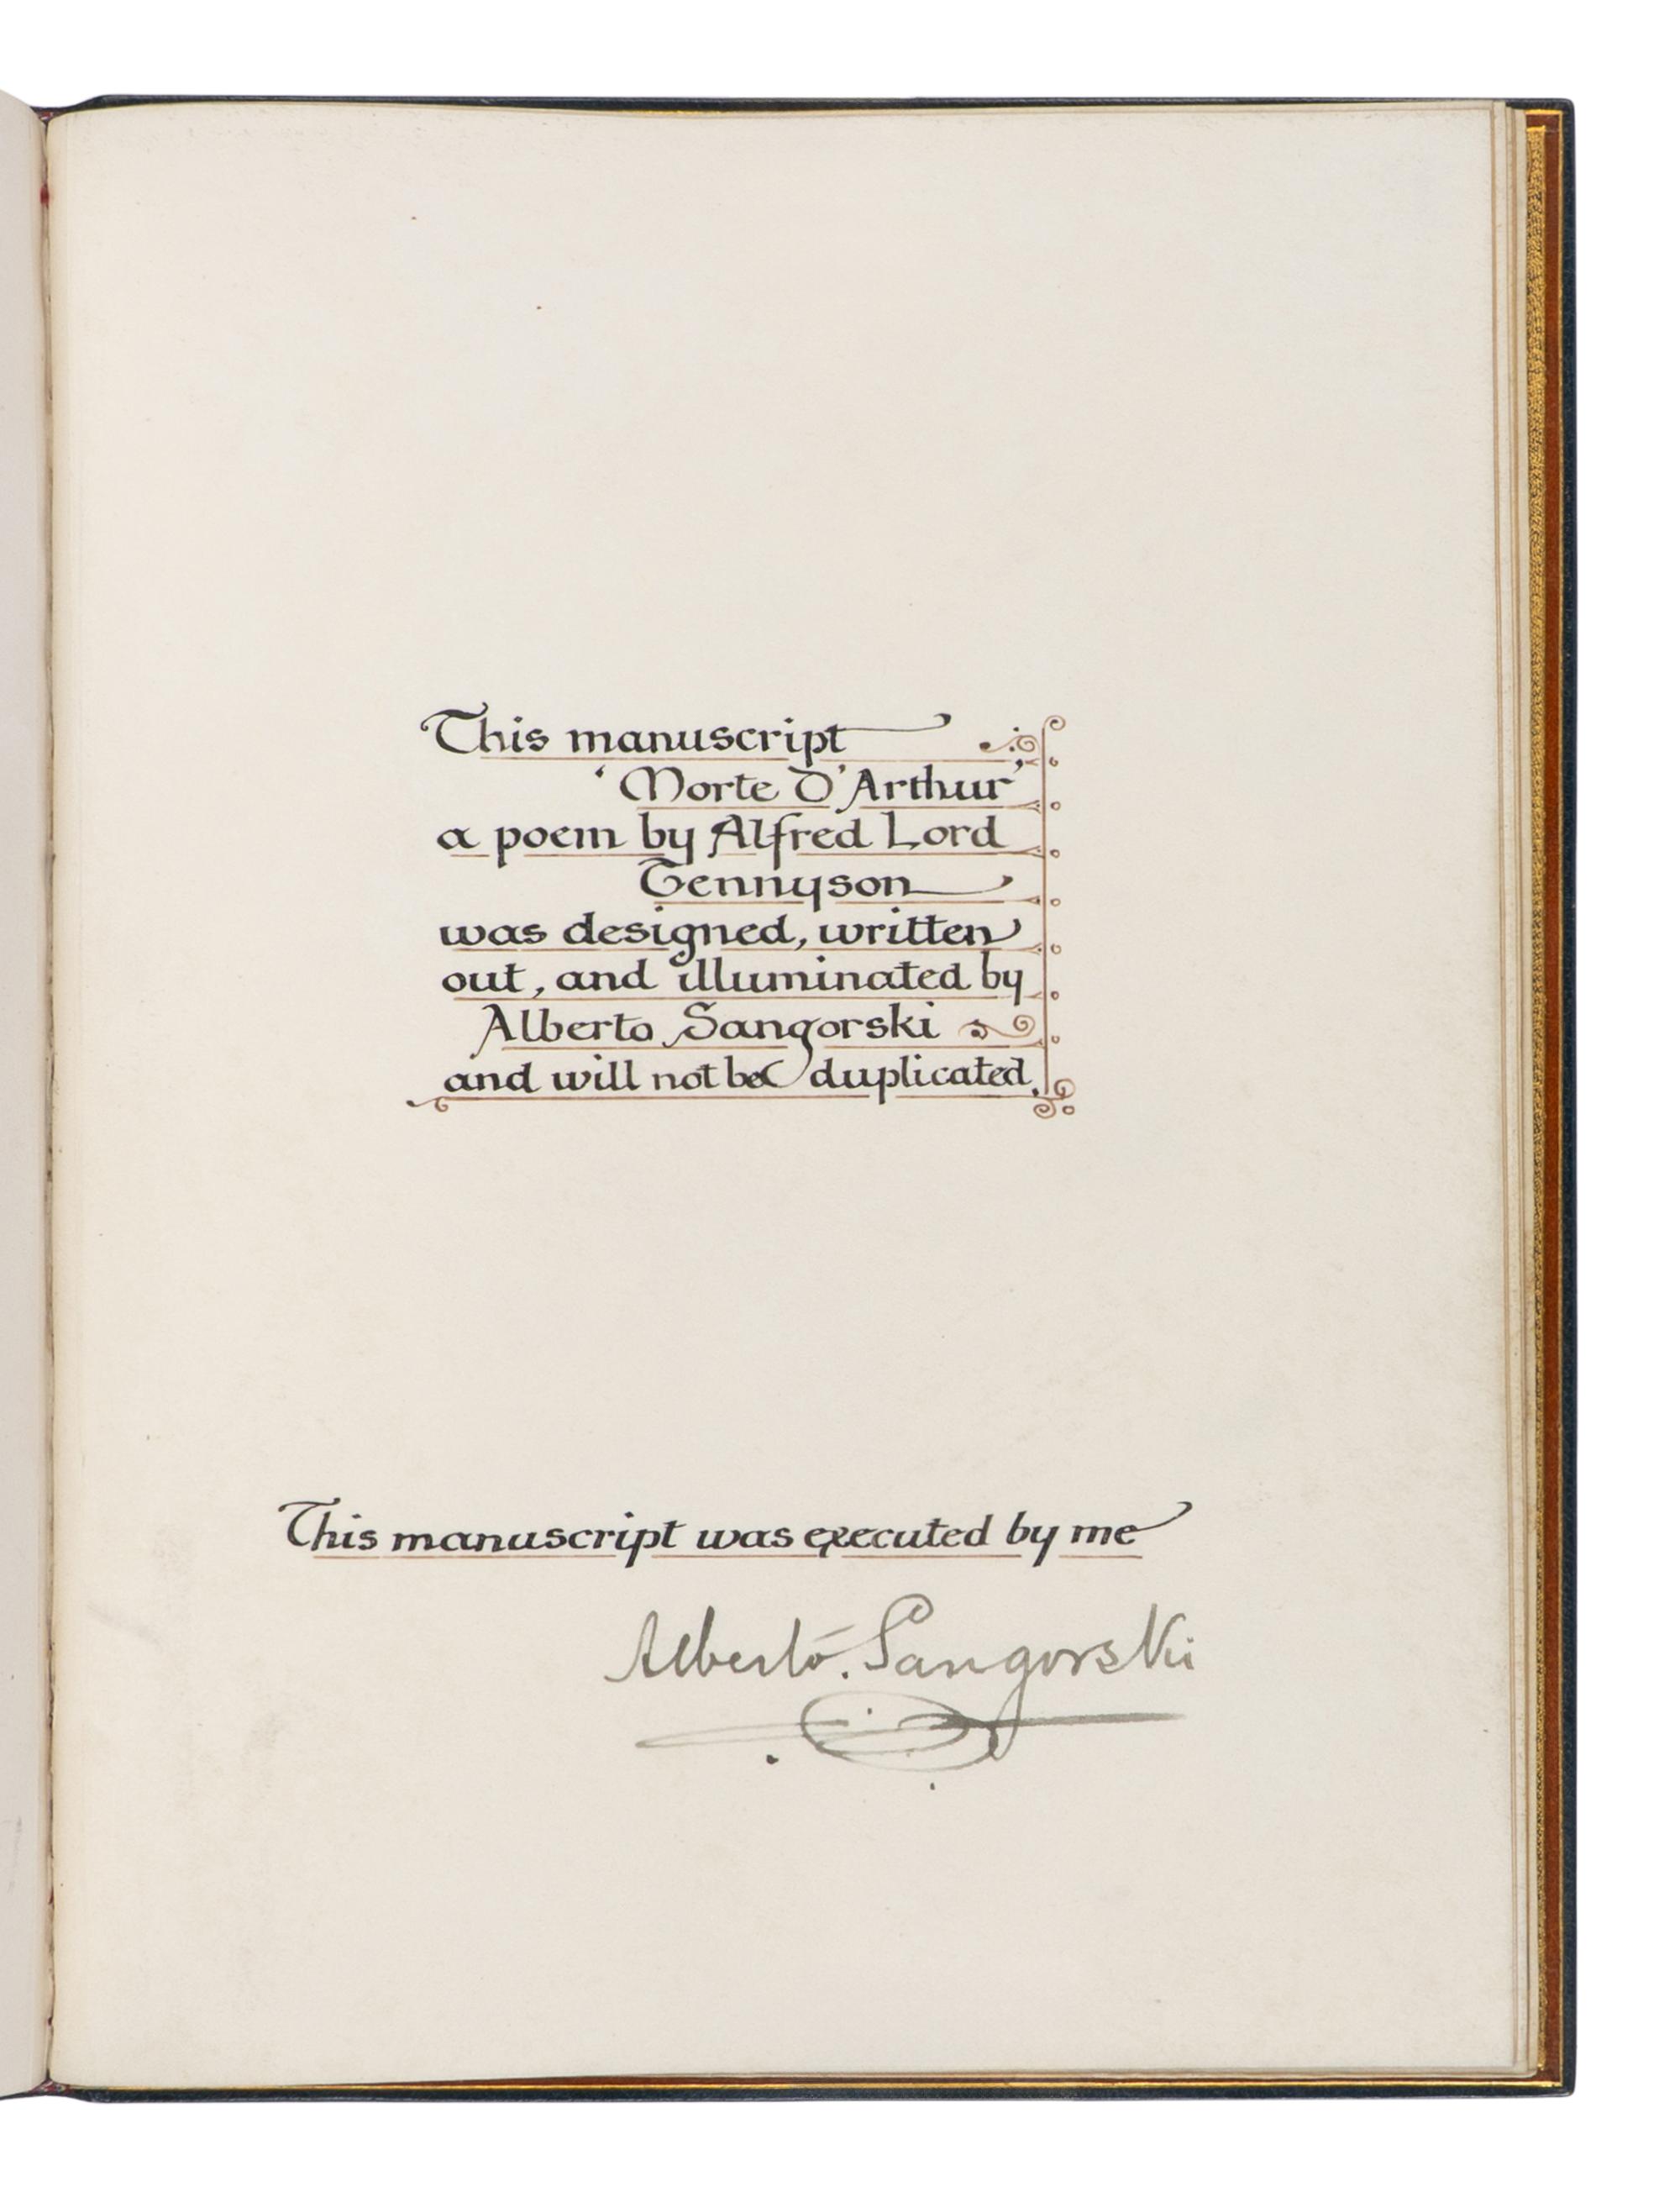 This manuscript
‘Morte D’Arthur’
a poem by Alfred Lord
Tennyson
was designed, written
out, and illuminated by
Alberto Sangorski
and will not be duplicated.
This manuscript was executed by me
Alberto. Sangorski